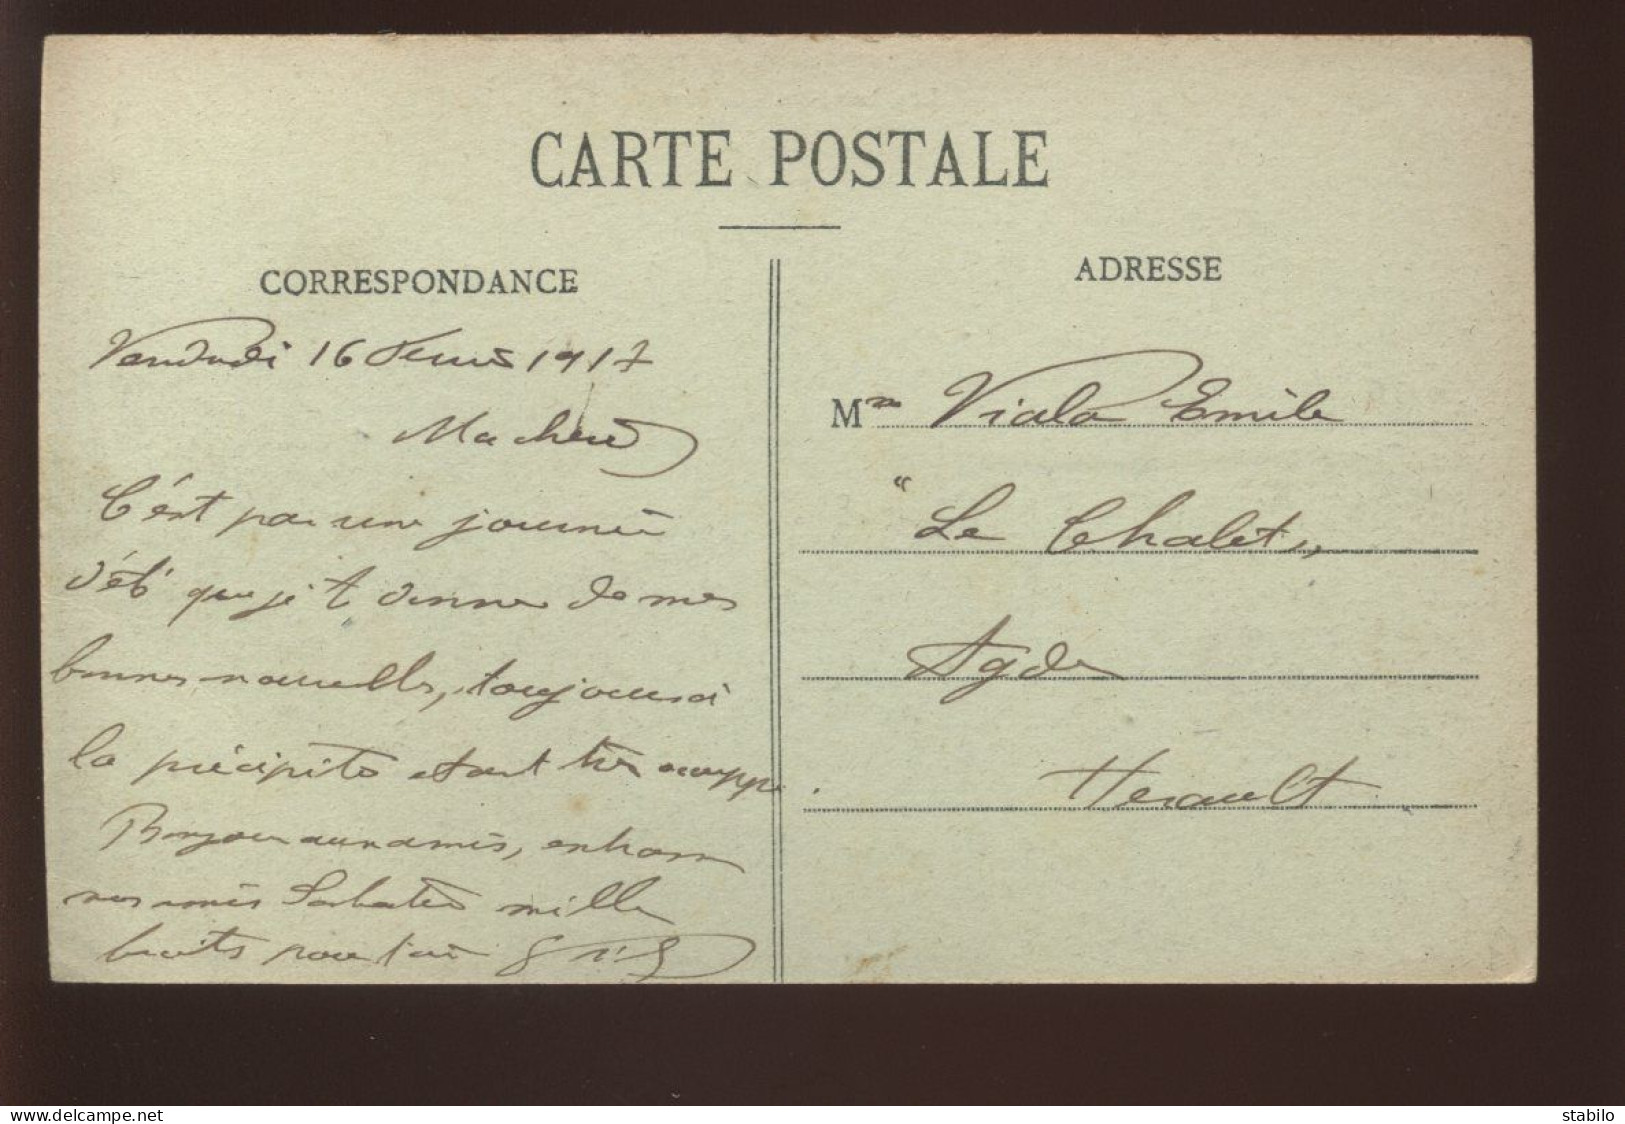 CARTE POSTALE
CORRESPONDANCE
ADRESSE
Vendredi 16 1917
Ma cherie
C'est par une journée
d'été que je te donne de mes
bonnes nouvelles, toujours à
la précipité etant très occuppé.
Bonjour aux amis,
nos amis Sabatié mille
pour toi
Mme Viala Emile
"Le Chalet"
Agde
Herault
www.delcampe.net
stabilo